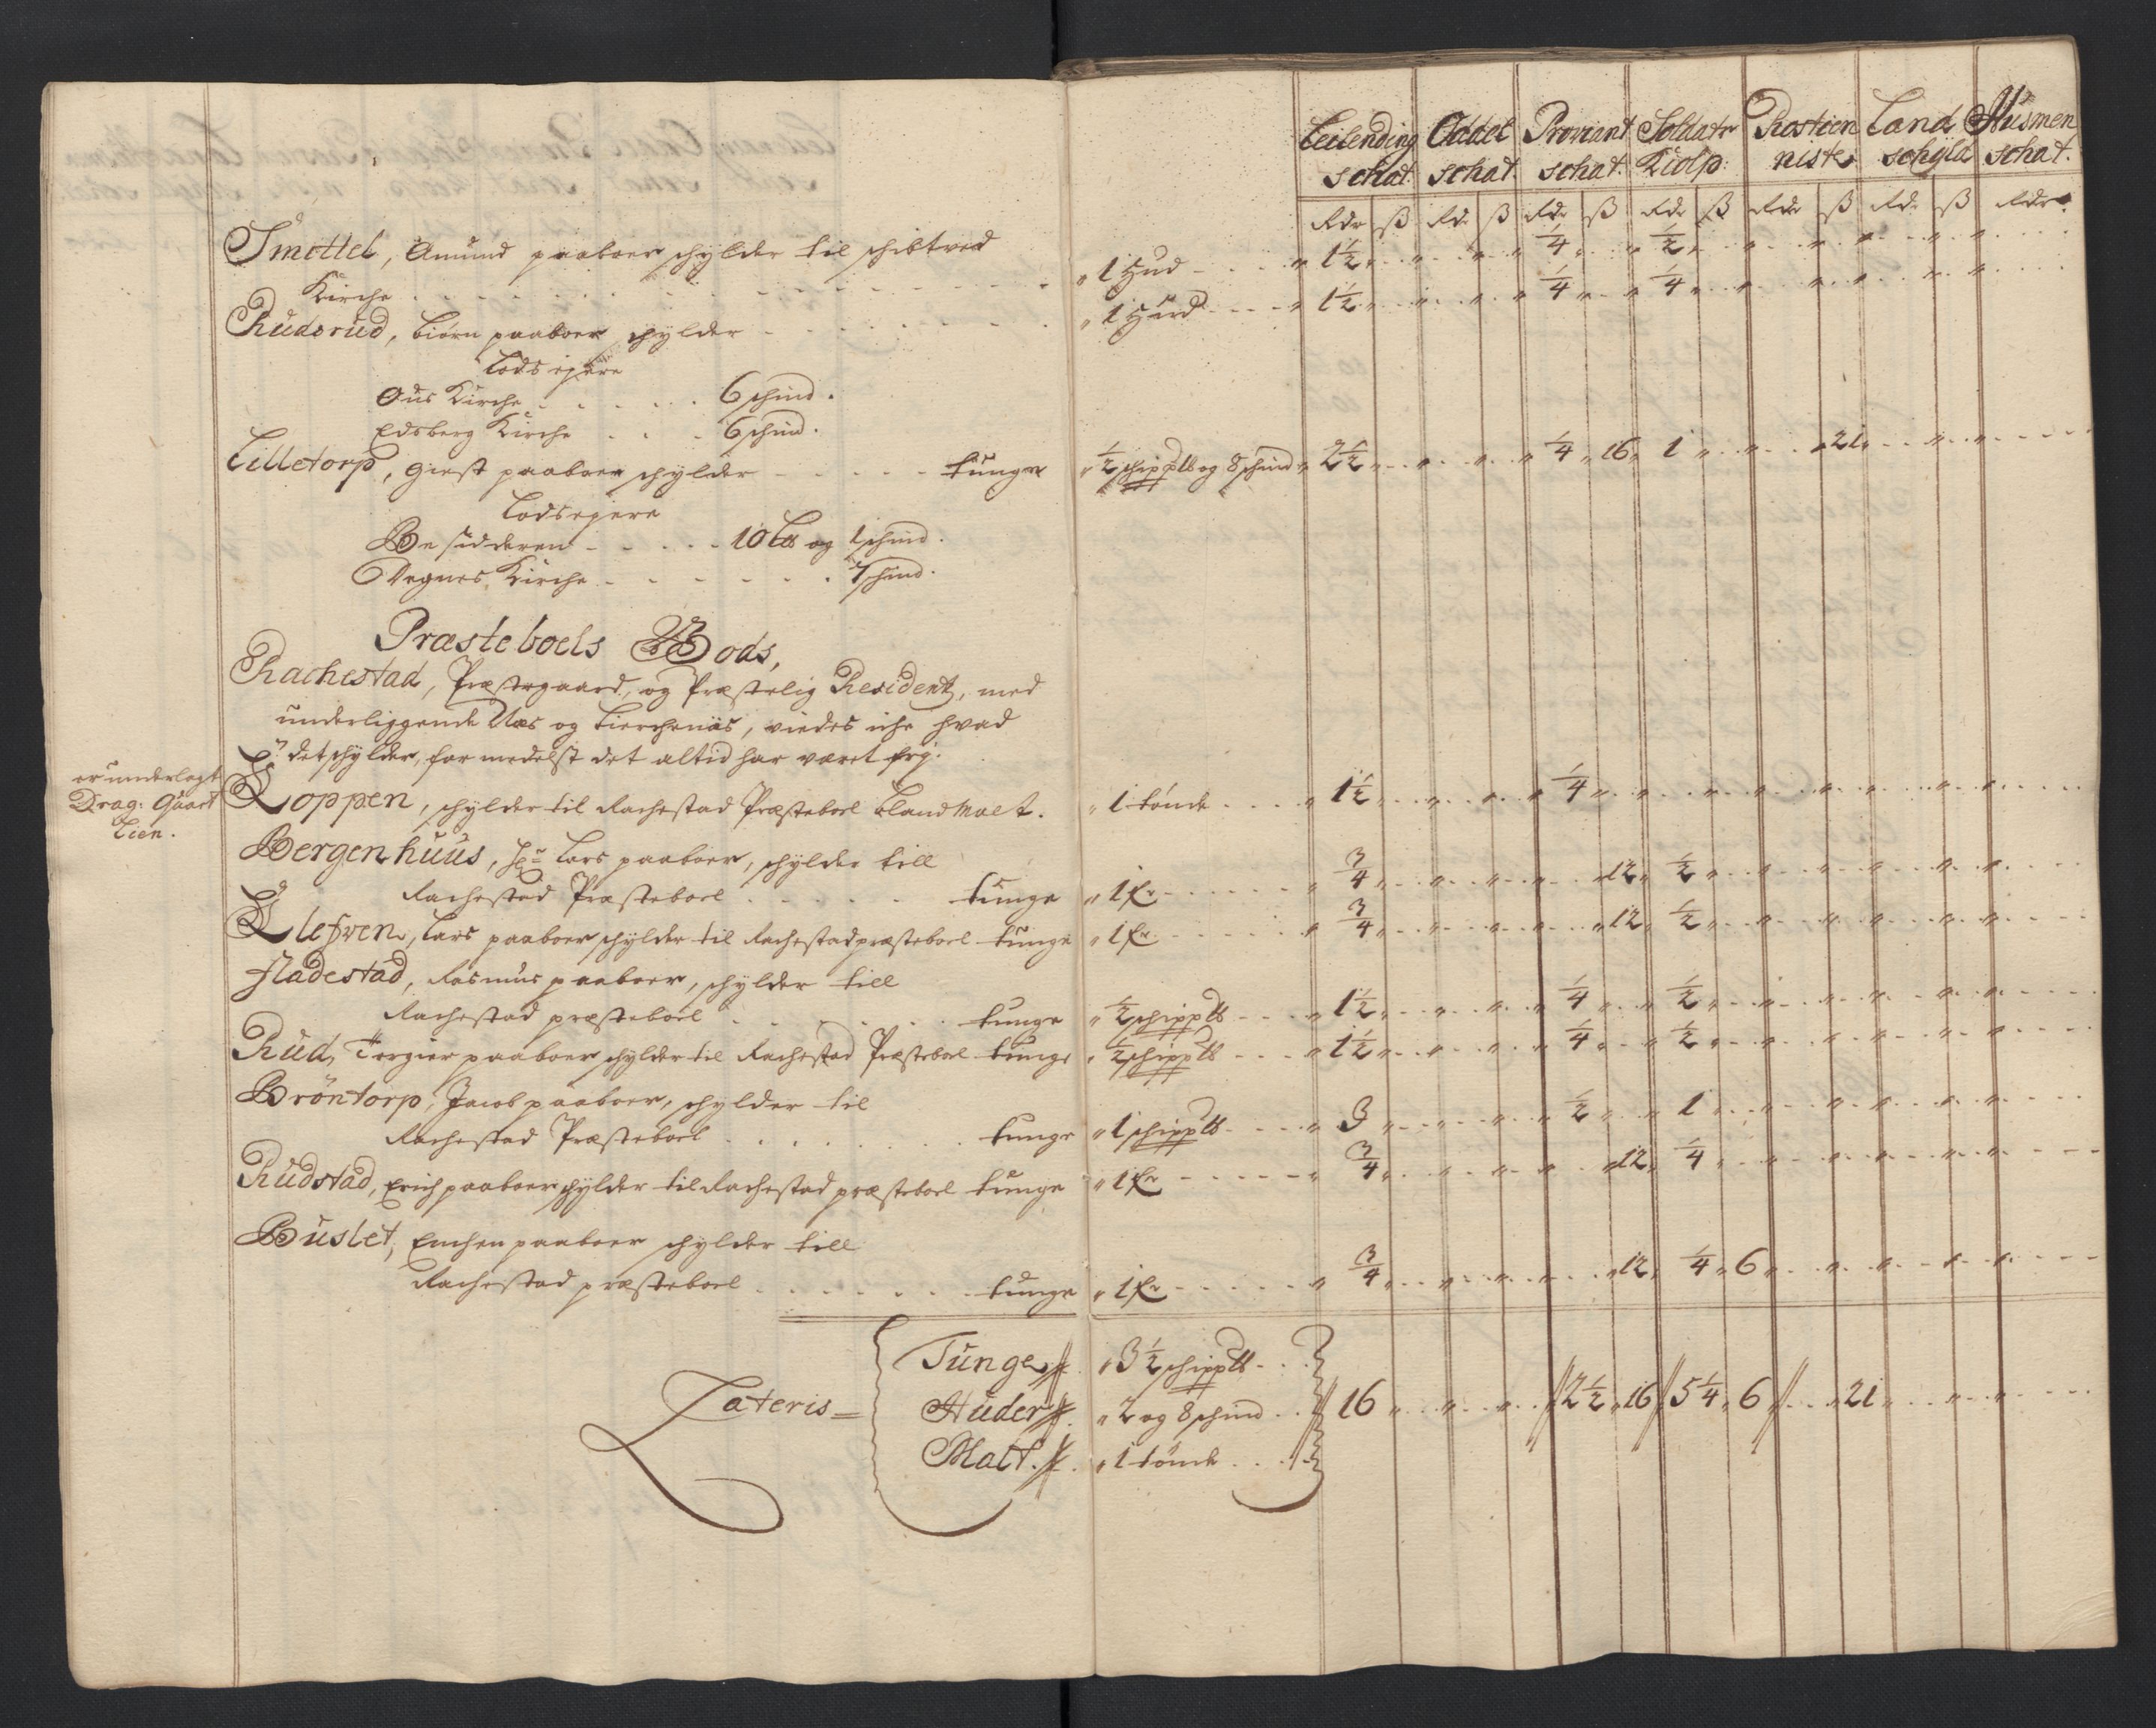 Leilending schat. Oddel schat. Proviant schat. Soldater Kiolp: Rostien niste Land schyld Husmen schat.
Rdr ß Rdr ß Rdr ß Rdr ß Rdr ß Rdr ß Rdr
Smettel, Amund paaboer schylder til schibtved
Kirche . . . . „ 1 Hud . . „ 1½ „ „ „ „ ¼ „ „ ½ „
Rudsrud, Biørn paaboer schylder . . „ 1 Huud . . „ 1½ „ „ „ „ ¼ „ „ ¼ „
Lodsejere
Ous Kirche . . . . 6 schind.
Edsberg Kirche . . . 6 schind.
Lilletorp, Giest paaboer schylder . . . tunge „ ½ schipp℔ og 8 schind „ 2½ „ „ „ „ ¼ „ 16 „ 1 „ „ „ 21 „
Lodsejere
Besidderen . . . . 10 L℔ og 1 schind.
Degnes Kirche . . . . 7 schind.
Præsteboels Gods,
Rachestad, Præstegaard, og Præstelig Resident, med
underliggende Næs og Kierchenæs, viedes iche hvad
det schylder, formedelst det altid har været frj.
er underlagt
Drag: Quart
Lien.
Loppen, schylder til Rachestad Præsteboel bland Malt. „ 1 tønde . . „ 1½ „ „ „ „ ¼ „
Bergenhuus, Lars paaboer, schylder till
Rachestad Præsteboel . . . tunge „ 1 fr . . „ ¾ „ „ „ „ „ 12 „ ½ „
Klefven, Lars paaboer schylder til Rachestad præsteboel tunge „ 1 fr . . „ ¾ „ „ „ „ „ 12 „ ½ „
Fladestad, Rasmus paaboer, schylder till
Rachestad præsteboel . . . tunge „ ½ schipp℔ . . „ 1½ „ „ „ „ ¼ „ „ ½ „
Rud, Torgier paaboer schylder til Rachestad Præsteboel tunge „ ½ schipp℔ . . „ 1½ „ „ „ „ ¼ „ „ ½ „
Brøntorp, Jacob paaboer, schylder til
Rachestad Præsteboel . . . tunge „ 1 schipp℔ . . „ 3 „ „ „ „ ½ „ „ 1 „
Rudstad, Erich paaboer schylder til Rachestad præsteboel tunge „ 1 fr . . „ ¾ „ „ „ „ „ 12 „ ¼ „
Buslet, Enchen paaboer schylder till
Rachestad præsteboel . . . tunge „ 1 fr . . „ ¾ „ „ „ „ „ 12 „ ¼ „ 6 „
Tunge „ 3½ schipp℔ . .
Lateris = Huder „ 2 og 8 schind . . 16 „ „ „ „ 2½ „ 16 5¼ „ 6 „ 21 „
Malt. „ 1 tønde . . .